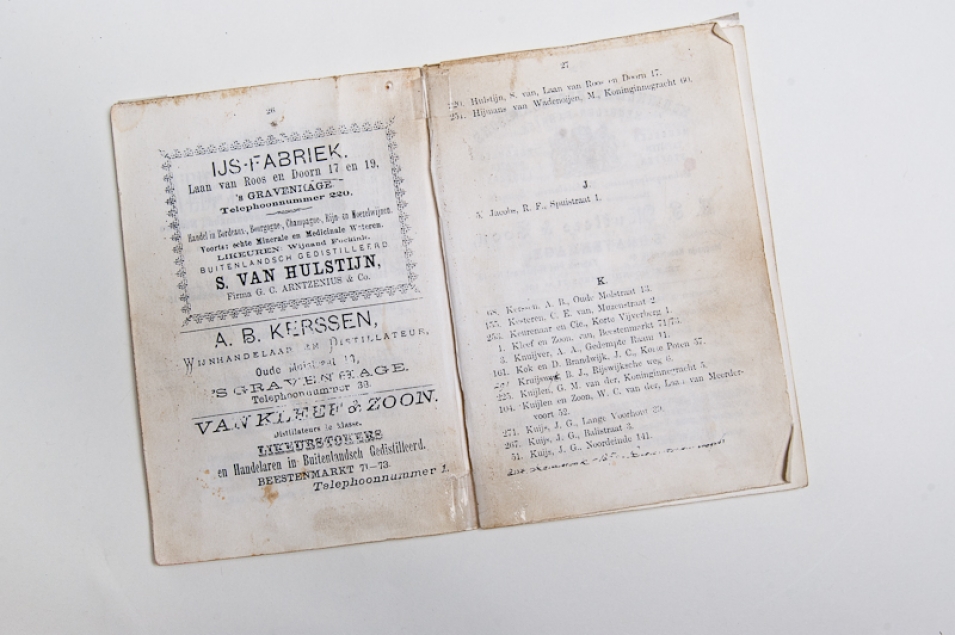 26
IJS-FABRIEK.
Laan van Roos en Doorn 17 en 19,
'S GRAVENHAGE
Telephoonnummer 220.
Handel in Bordeaux-, Bourgogne-, Champagne-, Rijn- en Moezelwijnen.
Voorts: echte Minerale en Medicinale Wateren.
LIKEUREN: Wijnand Fockink.
BUITENLANDSCH GEDISTILLEERD
S. VAN HULSTIJN,
Firma G. C. ARNTZENIUS & Co.
A. B. KERSSEN,
WIJNHANDELAAR EN DISTILLATEUR,
Oude Molstraat 13,
'S GRAVENHAGE.
Telephoonnummer 38.
VAN KLEEF & ZOON.
Distillateurs 1e klasse.
LIKEURSTOKERS
en Handelaren in Buitenlandsch Gedistilleerd.
BEESTENMARKT 71-73.
Telephoonnummer 1.
27
220. Hulstijn, S. van, Laan van Roos en Doorn 17.
251. Hijmans van Wadenoijen, M., Koninginnegracht 60.
J.
Jacobs, R. F., Spuistraat 1.
K.
68. Kerssen, A. B., Oude Molstraat 13.
155. Kesteren, C. E. van, Muzenstraat 2.
253. Keurenaar en Cie., Korte Vijverberg 1.
1. Kleef en Zoon, van, Beestenmarkt 71/73.
3. Knuijver, A. A., Gedempte Raam 41.
161. Kok en D. Brandwijk, J. C., Korte Poten 57.
Kruijswijk B. J., Rijswijksche weg 6.
225. Kuijlen, G. M. van der, Koninginnegracht 5.
104. Kuijlen en Zoon, W. C. van der, Laan van Meerder-
voort 52.
271. Kuijs, J. G., Lange Voorhout 39.
297. Kuijs, J. G., Balistraat 3.
51. Kuijs, J. G., Noordeinde 141.